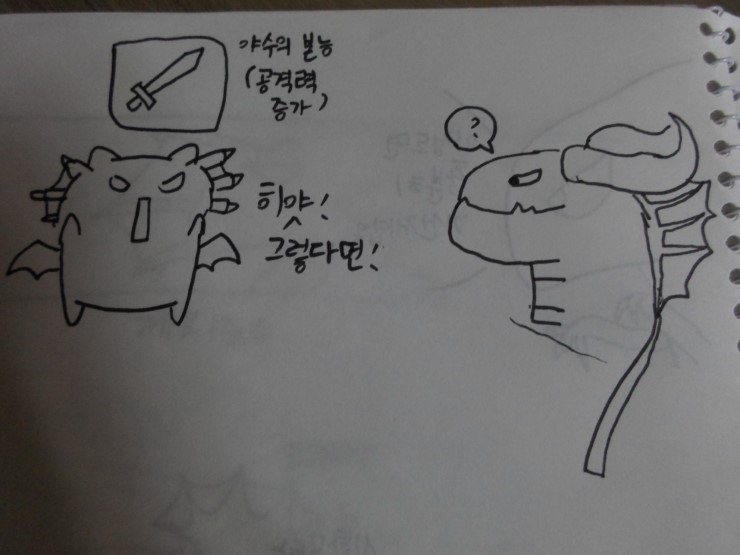 야수의 본능
(공격력
증가)
?
히얏!
그렇다면!